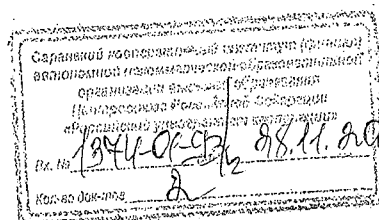 Саранский кооперативный институт (филиал)
автономной некоммерческой образовательной
организации высшего образования
Центросоюза Российской Федерации
«Российский университет кооперации»
Вх. № 28.11.20
Кол-во док-тов 2